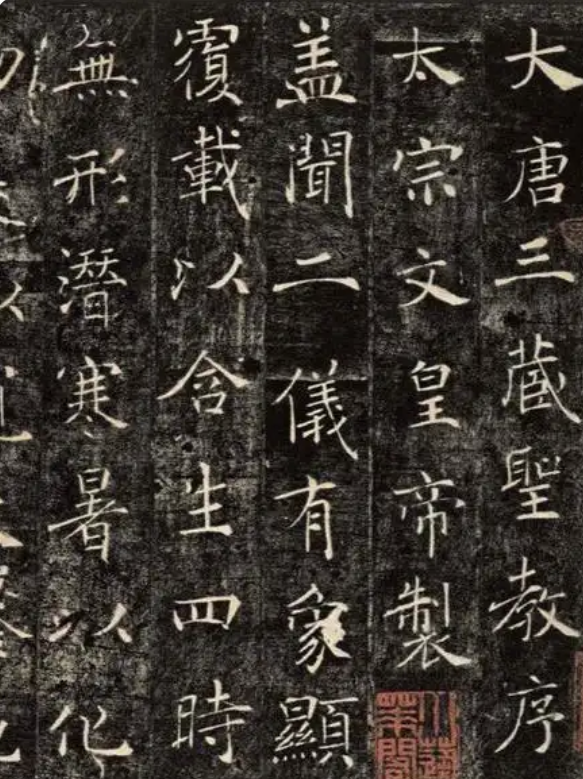 大唐三藏聖教序
太宗文皇帝製
盖聞二儀有象顯
覆載以含生四時
無形潛寒暑以化